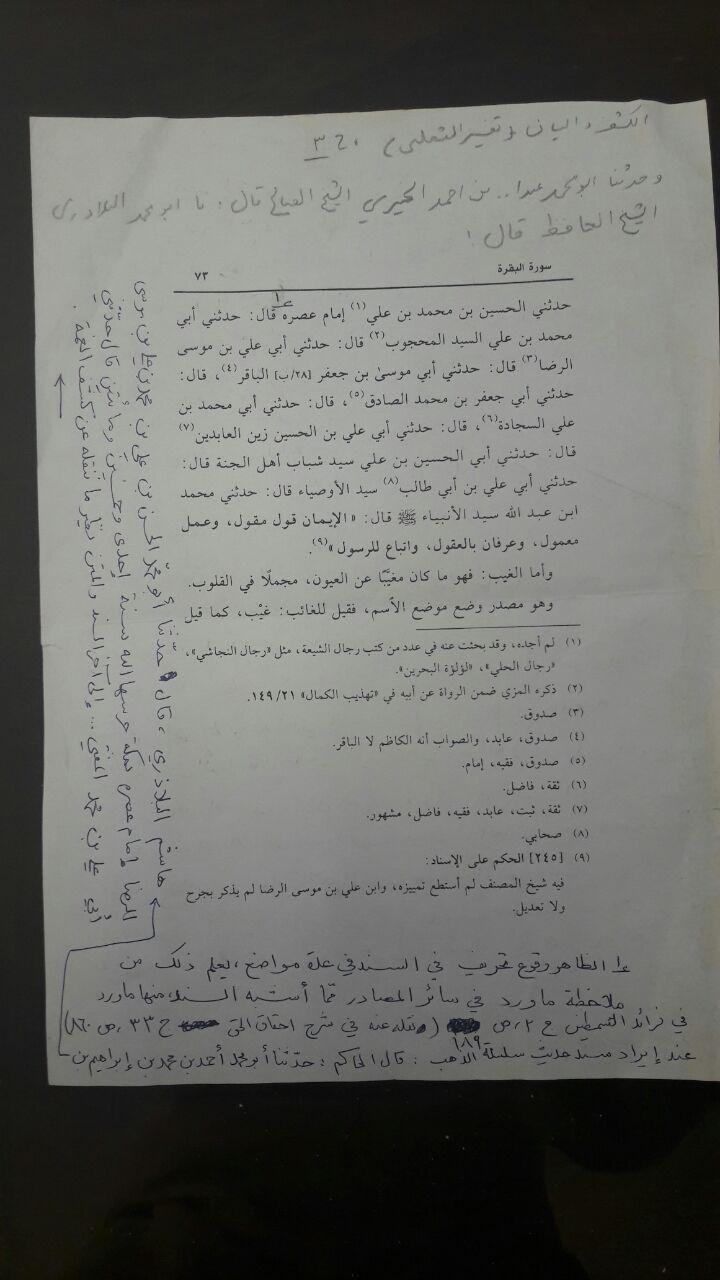 الكشف و البيان (تفسير الثعلبي) ، ج ٣
و حدثنا ابو محمد عبدا.. بن احمد الحيري الشيخ الصالح قال : نا ابو محمد البلاذري
الشيخ الحافظ قال :
سورة البقرة ٧٣
حدثني الحسين بن محمد بن علي(١) إمام عصره قال: حدثني أبي
محمد بن علي السيد المحجوب(٢) قال: حدثني أبي علي بن موسى
الرضا(٣) قال: حدثني أبي موسىٰ بن جعفر [٢٨/ب] الباقر(٤)، قال:
حدثني أبي جعفر بن محمد الصادق(٥)، قال: حدثني أبي محمد بن
علي السجادة(٦)، قال: حدثني أبي علي بن الحسين زين العابدين(٧)
قال: حدثني أبي الحسين بن علي سيد شباب أهل الجنة قال:
حدثني أبي علي بن أبي طالب(٨) سيد الأوصياء قال: حدثني محمد
ابن عبد الله سيد الأنبياء ﷺ قال: «الإيمان قول مقول، وعمل
معمول، وعرفان بالعقول، واتباع للرسول»(٩).
وأما الغيب: فهو ما كان مغيَّبًا عن العيون، مجملًا في القلوب.
وهو مصدر وضع موضع الأسم، فقيل للغائب: غيْب، كما قيل
(١) لم أجده، وقد بحثت عنه في عدد من كتب رجال الشيعة، مثل «رجال النجاشي»،
«رجال الحلي»، «لؤلؤة البحرين».
(٢) ذكره المزي ضمن الرواة عن أبيه في «تهذيب الكمال» ٢١/ ١٤٩.
(٣) صدوق.
(٤) صدوق، عابد، والصواب أنه الكاظم لا الباقر.
(٥) صدوق، فقيه، إمام.
(٦) ثقة، فاضل.
(٧) ثقة، ثبت، عابد، فقيه، فاضل، مشهور.
(٨) صحابي.
(٩) [٢٤٥] الحكم على الإسناد:
فيه شيخ المصنف لم أستطع تمييزه، وابن علي بن موسى الرضا لم يذكر بجرح
ولا تعديل.
الظاهر وقوع تحريف في السند في عدة مواضع ، يعلم ذلك من
ملاحظة ما ورد في سائر المصادر ممّا أشبه السند، منها ما ورد
في فرائد السمطين ج ٢، ص ١٨٩ (نقله عنه في شرح احقاق الحق ج ٣٣ ، ص ٨٦٠)
عند إيراد مسند حديث سلسلة الذهب : قال الحاكم : حدّثنا أبو محمد أحمد بن محمد بن إبراهيم بن
هاشم البلاذري ، قال حدّثنا أبو محمّد الحسن بن علي بن محمد بن علي بن موسى
الرضا إمام عصره بمكة حرسها الله سنة إحدى وخمسين ومائتين قال حدّثني
أبي علي بن محمد المفتي ... إلى آخر السند والمتن نظير ما ننقله عن كشف الغمة .